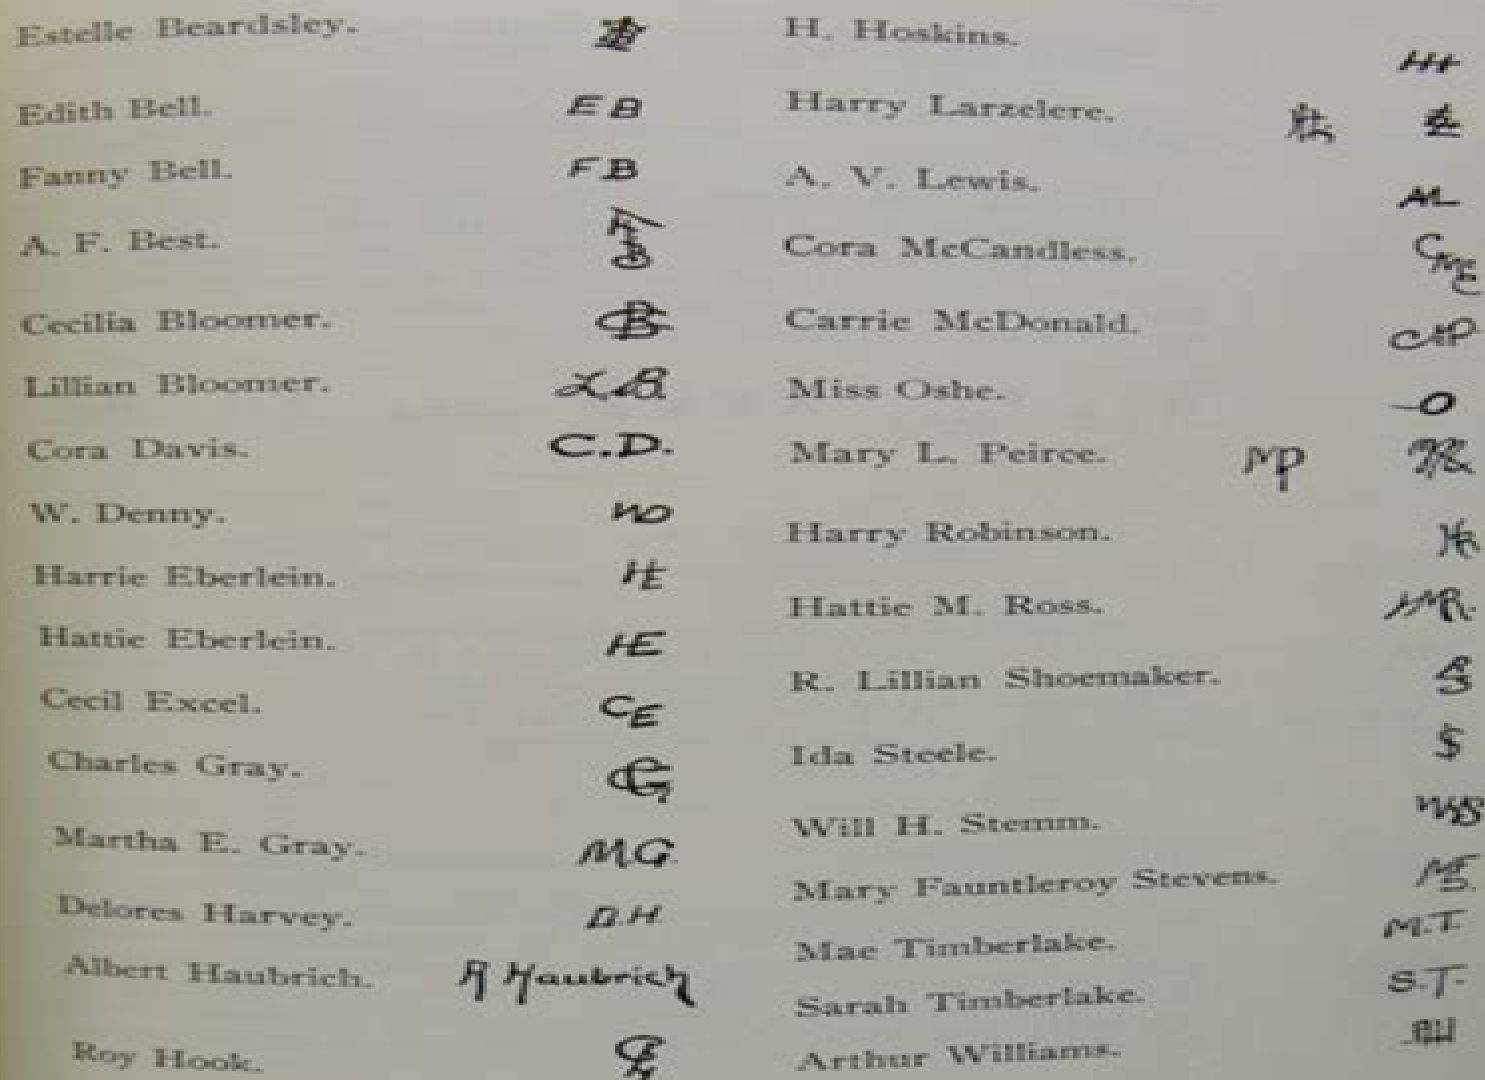 Estelle Beardsley.
Edith Bell. E B
Fanny Bell. F B
A. F. Best.
Cecilia Bloomer. CB
Lillian Bloomer. LB
Cora Davis. C.D.
W. Denny. WD
Harrie Eberlein. HE
Hattie Eberlein. HE
Cecil Excel. CE
Charles Gray. CG.
Martha E. Gray. MG
Delores Harvey. D.H.
Albert Haubrich. A Haubrich
Roy Hook.
H. Hoskins. HH
Harry Larzelere.
A. V. Lewis. AL
Cora McCandless.
Carrie McDonald.
Miss Oshe. O
Mary L. Peirce. MP
Harry Robinson. HR
Hattie M. Ross. HMR.
R. Lillian Shoemaker.
Ida Steele.
Will H. Stemm. WHS
Mary Fauntleroy Stevens.
Mae Timberlake. M.T.
Sarah Timberlake. S.T.
Arthur Williams.